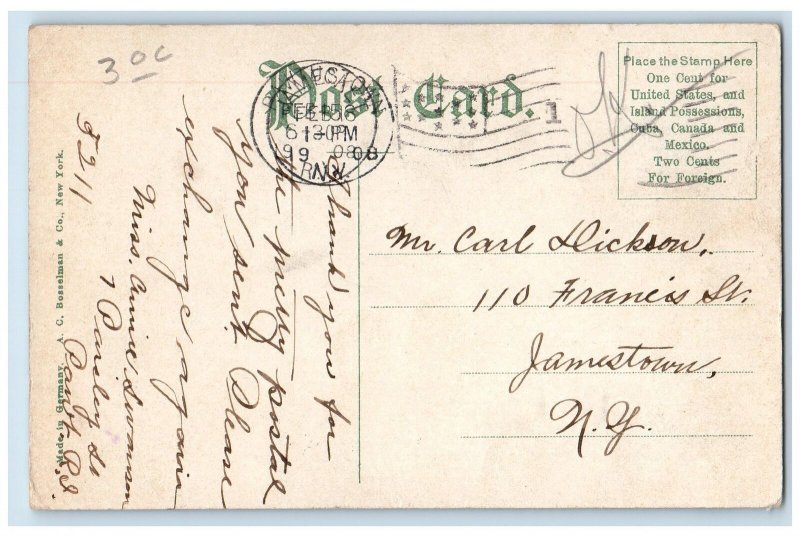 30c
Post Card.
Place the Stamp Here
One Cent for
United States, and
Island Possessions,
Cuba, Canada and
Mexico.
Two Cents
For Foreign.
1
Mr. Carl Dickson,
110 Francis St.
Jamestown,
N.Y.
Thank you for
the pretty postal
you sent. Please
exchange again
Miss. Annie Swanson
7 Parsley St
Pawt R.I.
Made in Germany. A. C. Bosselman & Co., New York.